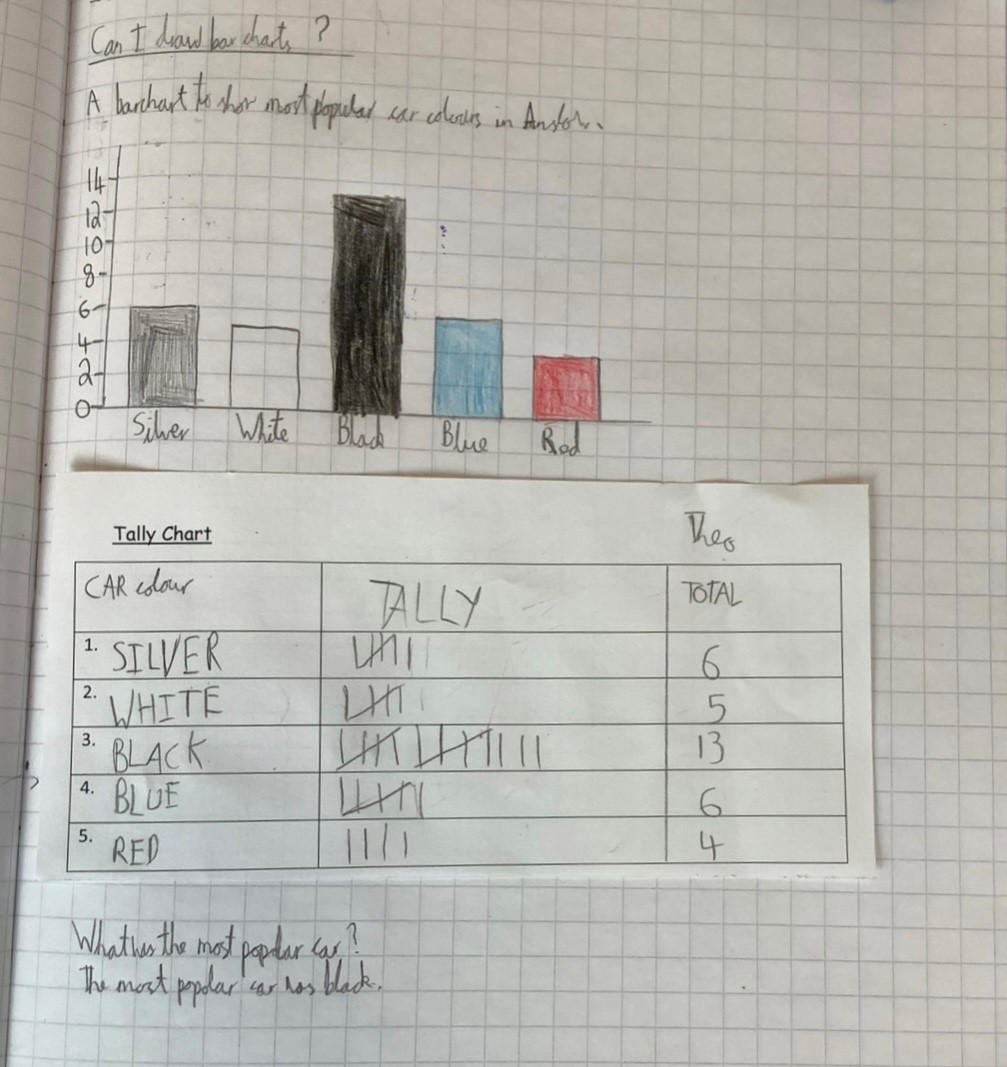 Can I draw bar charts ?
A barchart to show most popular car colours in
14
12
10
8
6
4
2
0
Silver White Black Blue Red
Tally Chart Theo
CAR colour TALLY TOTAL
1. SILVER 6
2. WHITE 5
3. BLACK 13
4. BLUE 6
5. RED 4
What was the most popular car?
The most popular car was black.